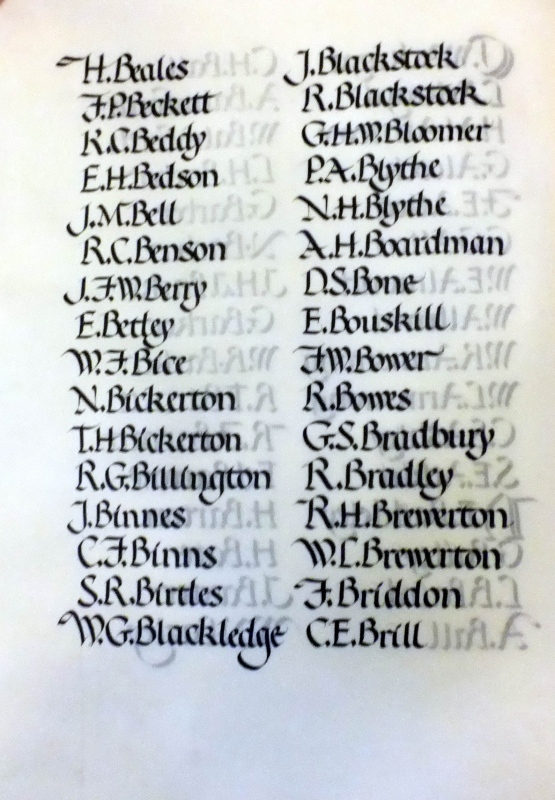 H.Beales
F.P.Beckett
R.C.Beddy
E.H.Bedson
J.M.Bell
R.C.Benson
J.F.W.Berry
E.Betley
W.F.Bice
N.Bickerton
T.H Bickerton
R.G.Billington
J.Binnes
C.F.Binns
S.R.Birtles
W.G.Blackledge
J.Blackstock
R.Blackstock
G.H.W.Bloomer
P.A.Blythe
N.H.Blythe
A.H.Boardman
D.S.Bone
E.Bouskill
F.W.Bower
R.Bowes
G.S.Bradbury
R.Bradley
R.H.Brewerton
W.L.Brewerton
F.Briddon
C.E.Brill